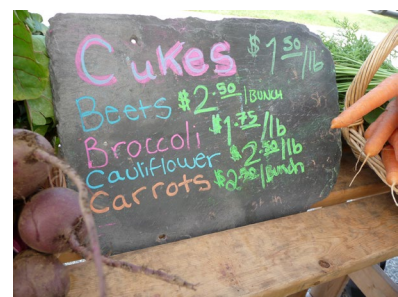 Cukes $1.50/lb
Beets $2.50/BUNCH
Broccoli $1.75/lb
Cauliflower $2.50/lb
Carrots $2.50/Bunch